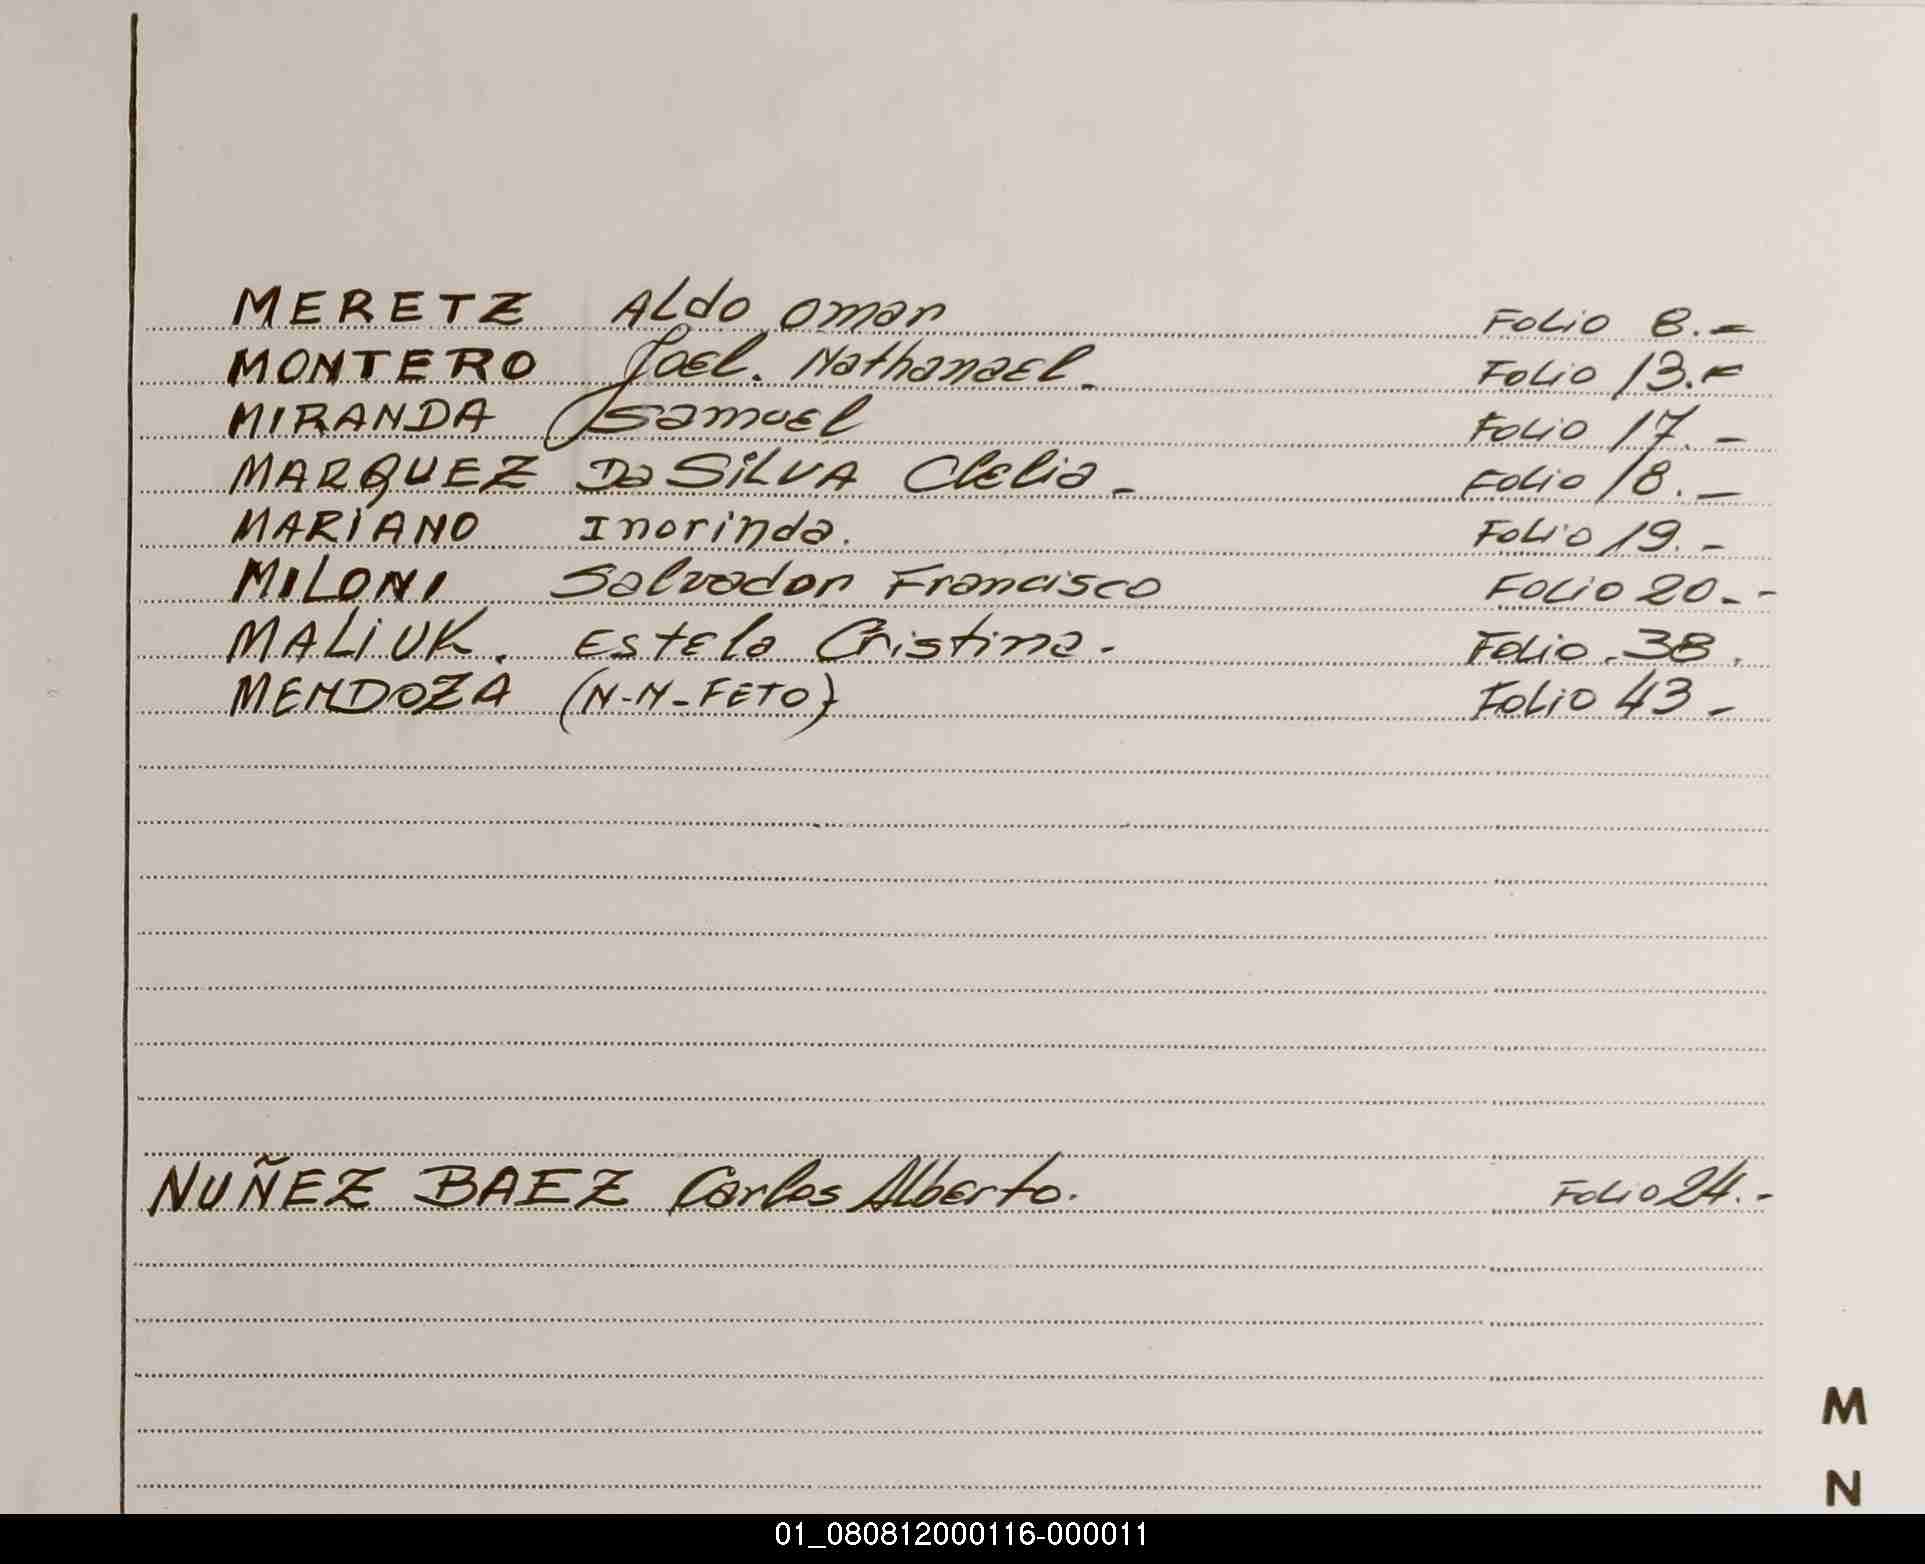 MERETZ Aldo Omar Folio 8.-
MONTERO Joel. Nathanael. Folio 13.-
MIRANDA Samuel Folio 17.-
MARQUEZ Da SiLVA Clelia - Folio 18.-
MARiANO Inorinda. Folio 19.-
MILONI Salvador Francisco Folio 20.--
MALiUK. Estela Cristina.- Folio.38.
MENDOZA (N-N-FETO) Folio 43-
NUÑEZ BAEZ Carlos Alberto. Folio 24.-
M
N
01_080812000116-000011